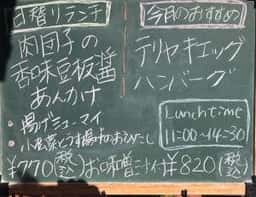 日替りランチ
肉団子の
香味豆板醤
あんかけ
・揚げシューマイ
・小松菜とうす揚げのおひたし
¥770(税込)
今月のおすすめ
テリヤキエッグ
ハンバーグ
Lunch time
11:00~14:30
お味噌汁付¥820(税込)